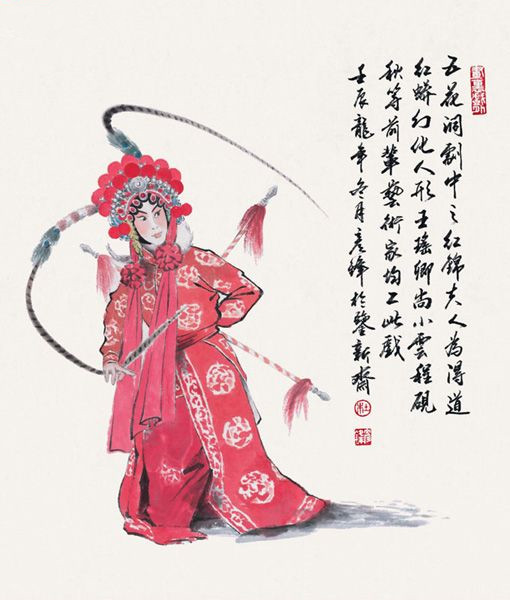 五花洞劇中之紅錦夫人為得道
紅蟒幻化人形王瑤卿尚小雲程硯
秋等前輩藝術家均工此戲
壬辰龍年冬月彥鋒於鑒新齋